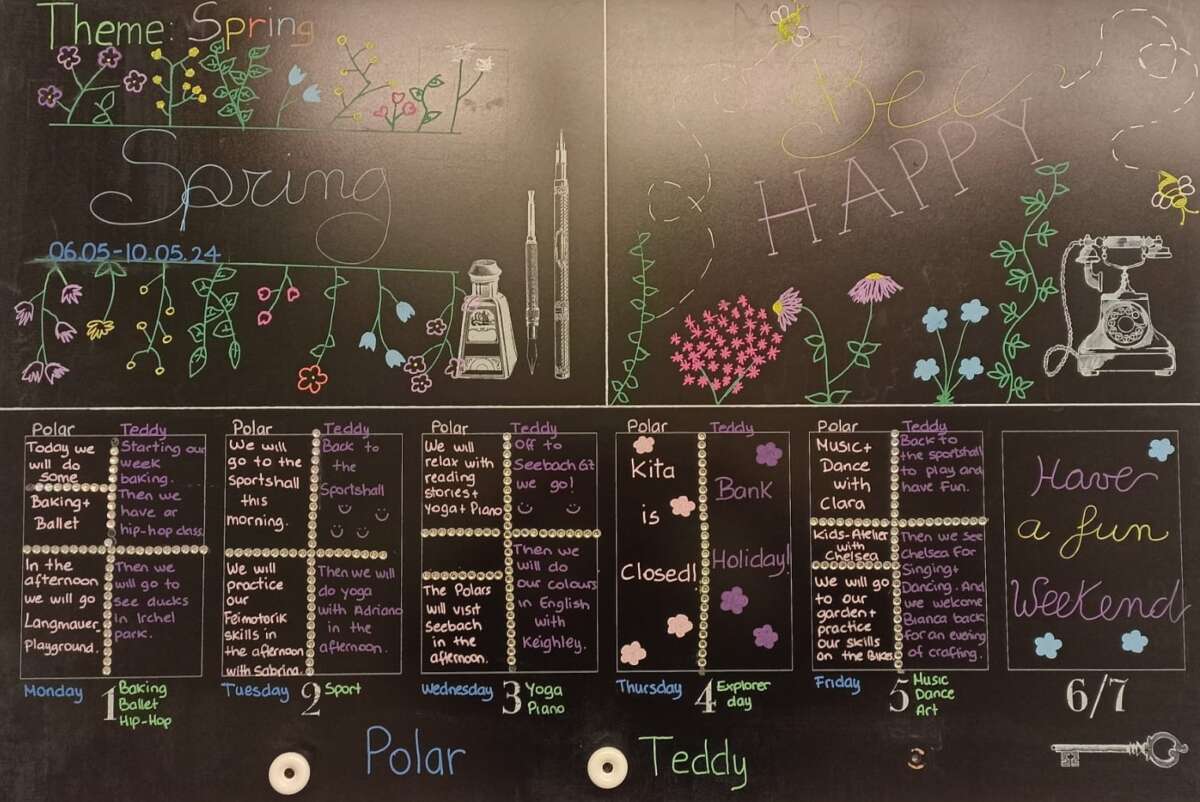 Theme: Spring
Spring
06.05-10.05.24
Bee
HAPPY
Polar
Today we
will do
some
Baking+
Ballet
In the
afternoon
we will go
Langmauer
Playground.
Teddy
Starting our
week
baking.
Then we
have ar
hip-hop class.
Then we
will go to
see ducks
in Irchel
park.
Polar
We will
go to the
Sportshall
this
morning.
We will
practice
our
Feimotorik
skills in
the afternoon
with Sabrina.
Teddy
Back to
the
Sportshall
Then we will
do yoga
with Adriano
in the
afternoon.
Polar
We will
relax with
reading
stories+
yoga+Piano
The Polars
will visit
Seebach
in the
afternoon.
Teddy
Off to
Seebach 67
we go!
Then we
will do
our colours
in English
with
Keighley.
Polar
Kita
is
Closed!
Teddy
Bank
Holiday!
Polar
Music+
Dance
with
Clara
Kids-Atelier
with
Chelsea
We will go
to our
garden+
practice
our skills
on the Bikes.
Teddy
Back to
the sportshall
to play and
have Fun.
Then we see
Chelsea For
Singing+
Dancing. And
we welcome
Bianca back
for an evening
of crafting.
Have
a fun
Weekend
Monday 1 Baking
Ballet
Hip-Hop
Tuesday 2 Sport
Wednesday 3 Yoga
Piano
Thursday 4 Explorer
day
Friday 5 Music
Dance
Art
6/7
Polar
Teddy